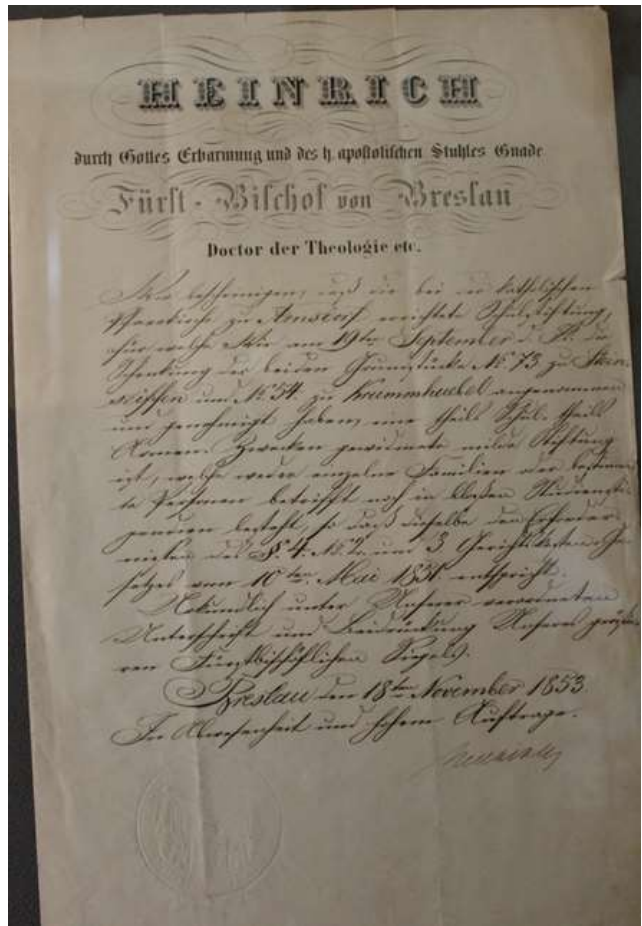 HEINRICH
durch Gottes Erbarmung und des h. apostolischen Stuhles Gnade
Fürst-Bischof von Breslau
Doctor der Theologie etc.
Wir bescheinigen, daß die bei der katholischen
Pfarrkirche zu Arnsdorf errichtete Schulstiftung,
für welche Wir am 19ten September d. Js. die
Schenkung der beiden Grundstücke No. 73 zu Stein-
seiffen und No. 54 zu Krummhuebel angenommen
und genehmigt haben, eine theils Schul- theils
Armen-Zwecken gewidmete milde Stiftung
ist, welche weder einzelne Familien oder bestimm-
te Personen betrifft noch in bloßen Studiensti-
pendien besteht, so daß dieselbe den Erforder-
nissen des §. 4. No. 2. und 3 Gerichtskosten-Ge-
setzes vom 10ten Mai 1851. entspricht.
Urkundlich unter Unserer verordneten
Unterschrift und Beidrückung Unseres größe-
ren Fürstbischöflichen Siegels.
Breslau den 18ten November 1853.
In Abwesenheit und hohem Auftrage.